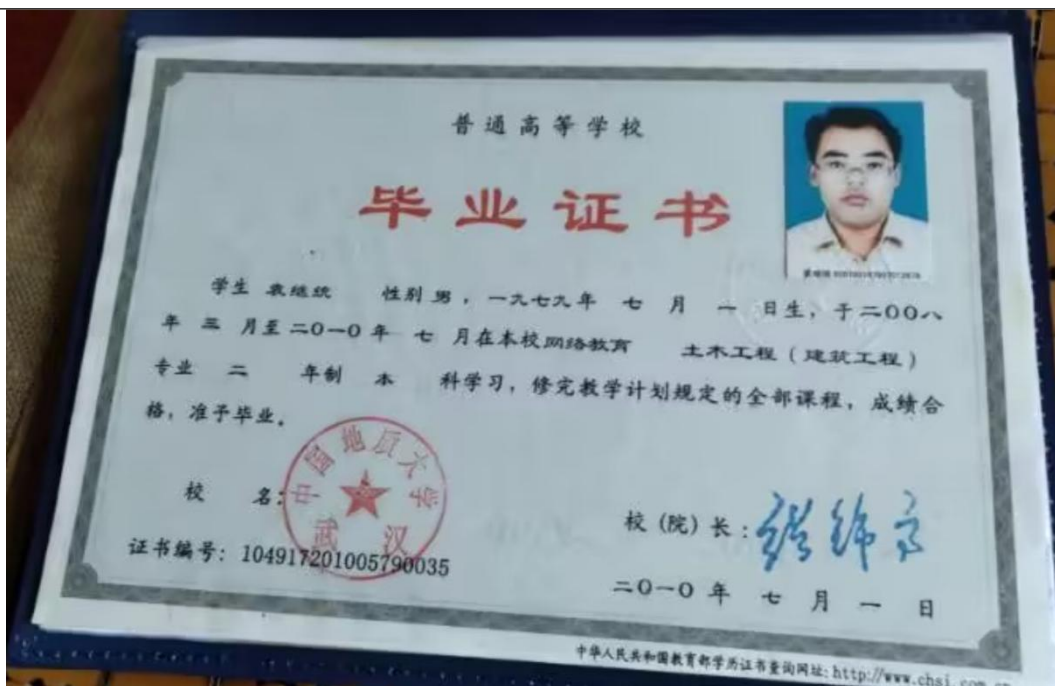 普通高等学校
毕业证书
学生 袁继统 性别 男，一九七九年 七 月 一 日生，于二〇〇八
年 三 月至二〇一〇年 七 月在本校网络教育 土木工程（建筑工程）
专业 二 年制 本 科学习，修完教学计划规定的全部课程，成绩合
格，准予毕业。
中国地质大学
武汉
校 名：
校（院）长：张锦高
证书编号：104917201005790035
二〇一〇年 七 月 一 日
中华人民共和国教育部学历证书查询网址：http://www.chsi.com.cn